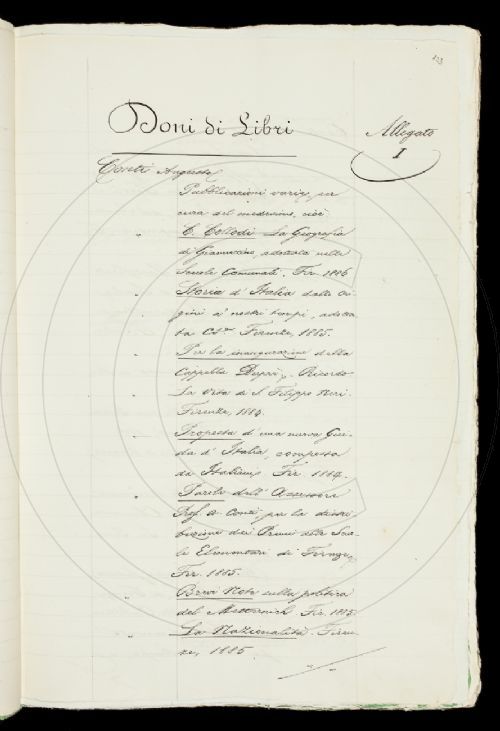 123
Doni di Libri
Allegato
I
Conti Augusto,
Pubblicazioni varie, per
cura del medesimo, cioè
" C. Collodi La Geografia
di Giannettino, adottata nelle
Scuole Comunali. Fir. 1886
" Storia d'Italia dalle ori-
gini ai nostri tempi, adotta-
ta Cs. Firenze, 1885.
" Per la inaugurazione della
Cappella Duprè. Ricordo
La Vita di S. Filippo Neri.
Firenze, 1884.
" Proposta d'una nuova Gui-
da d'Italia, composta
da Italiani, Fir. 1884.
" Parole dell'Assessore
Prof. A. Conti, per la distri-
buzione dei Premi alle Scuo-
le Elementari di Firenze,
Fir. 1885.
" Brevi Note sulla politica
del Metternich Fir. 1885.
" La Nazionalità. Firen-
ze, 1885.